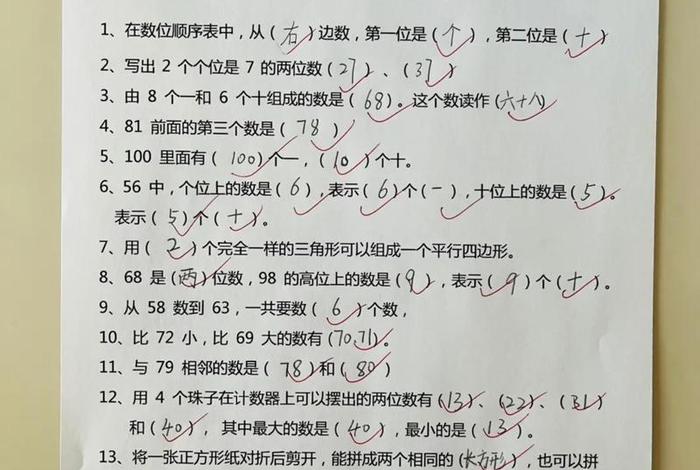 1、在数位顺序表中，从（右）边数，第一位是（个），第二位是（十）
2、写出 2 个个位是 7 的两位数（27）、（37）
3、由 8 个一和 6 个十组成的数是（68）。这个数读作（六十八）
4、81 前面的第三个数是（78）
5、100 里面有（100）个一，（10）个十。
6、56 中，个位上的数是（6），表示（6）个（一），十位上的数是（5）。
表示（5）个（十）。
7、用（2）个完全一样的三角形可以组成一个平行四边形。
8、68 是（两）位数，98 的高位上的数是（9），表示（9）个（十）。
9、从 58 数到 63，一共要数（6）个数，
10、比 72 小，比 69 大的数有（70,71）。
11、与 79 相邻的数是（78）和（80）
12、用 4 个珠子在计数器上可以摆出的两位数有（13）、（22）、（31）
和（40），其中最大的数是（40），最小的是（13）。
13、将一张正方形纸对折后剪开，能拼成两个相同的（长方形），也可以拼